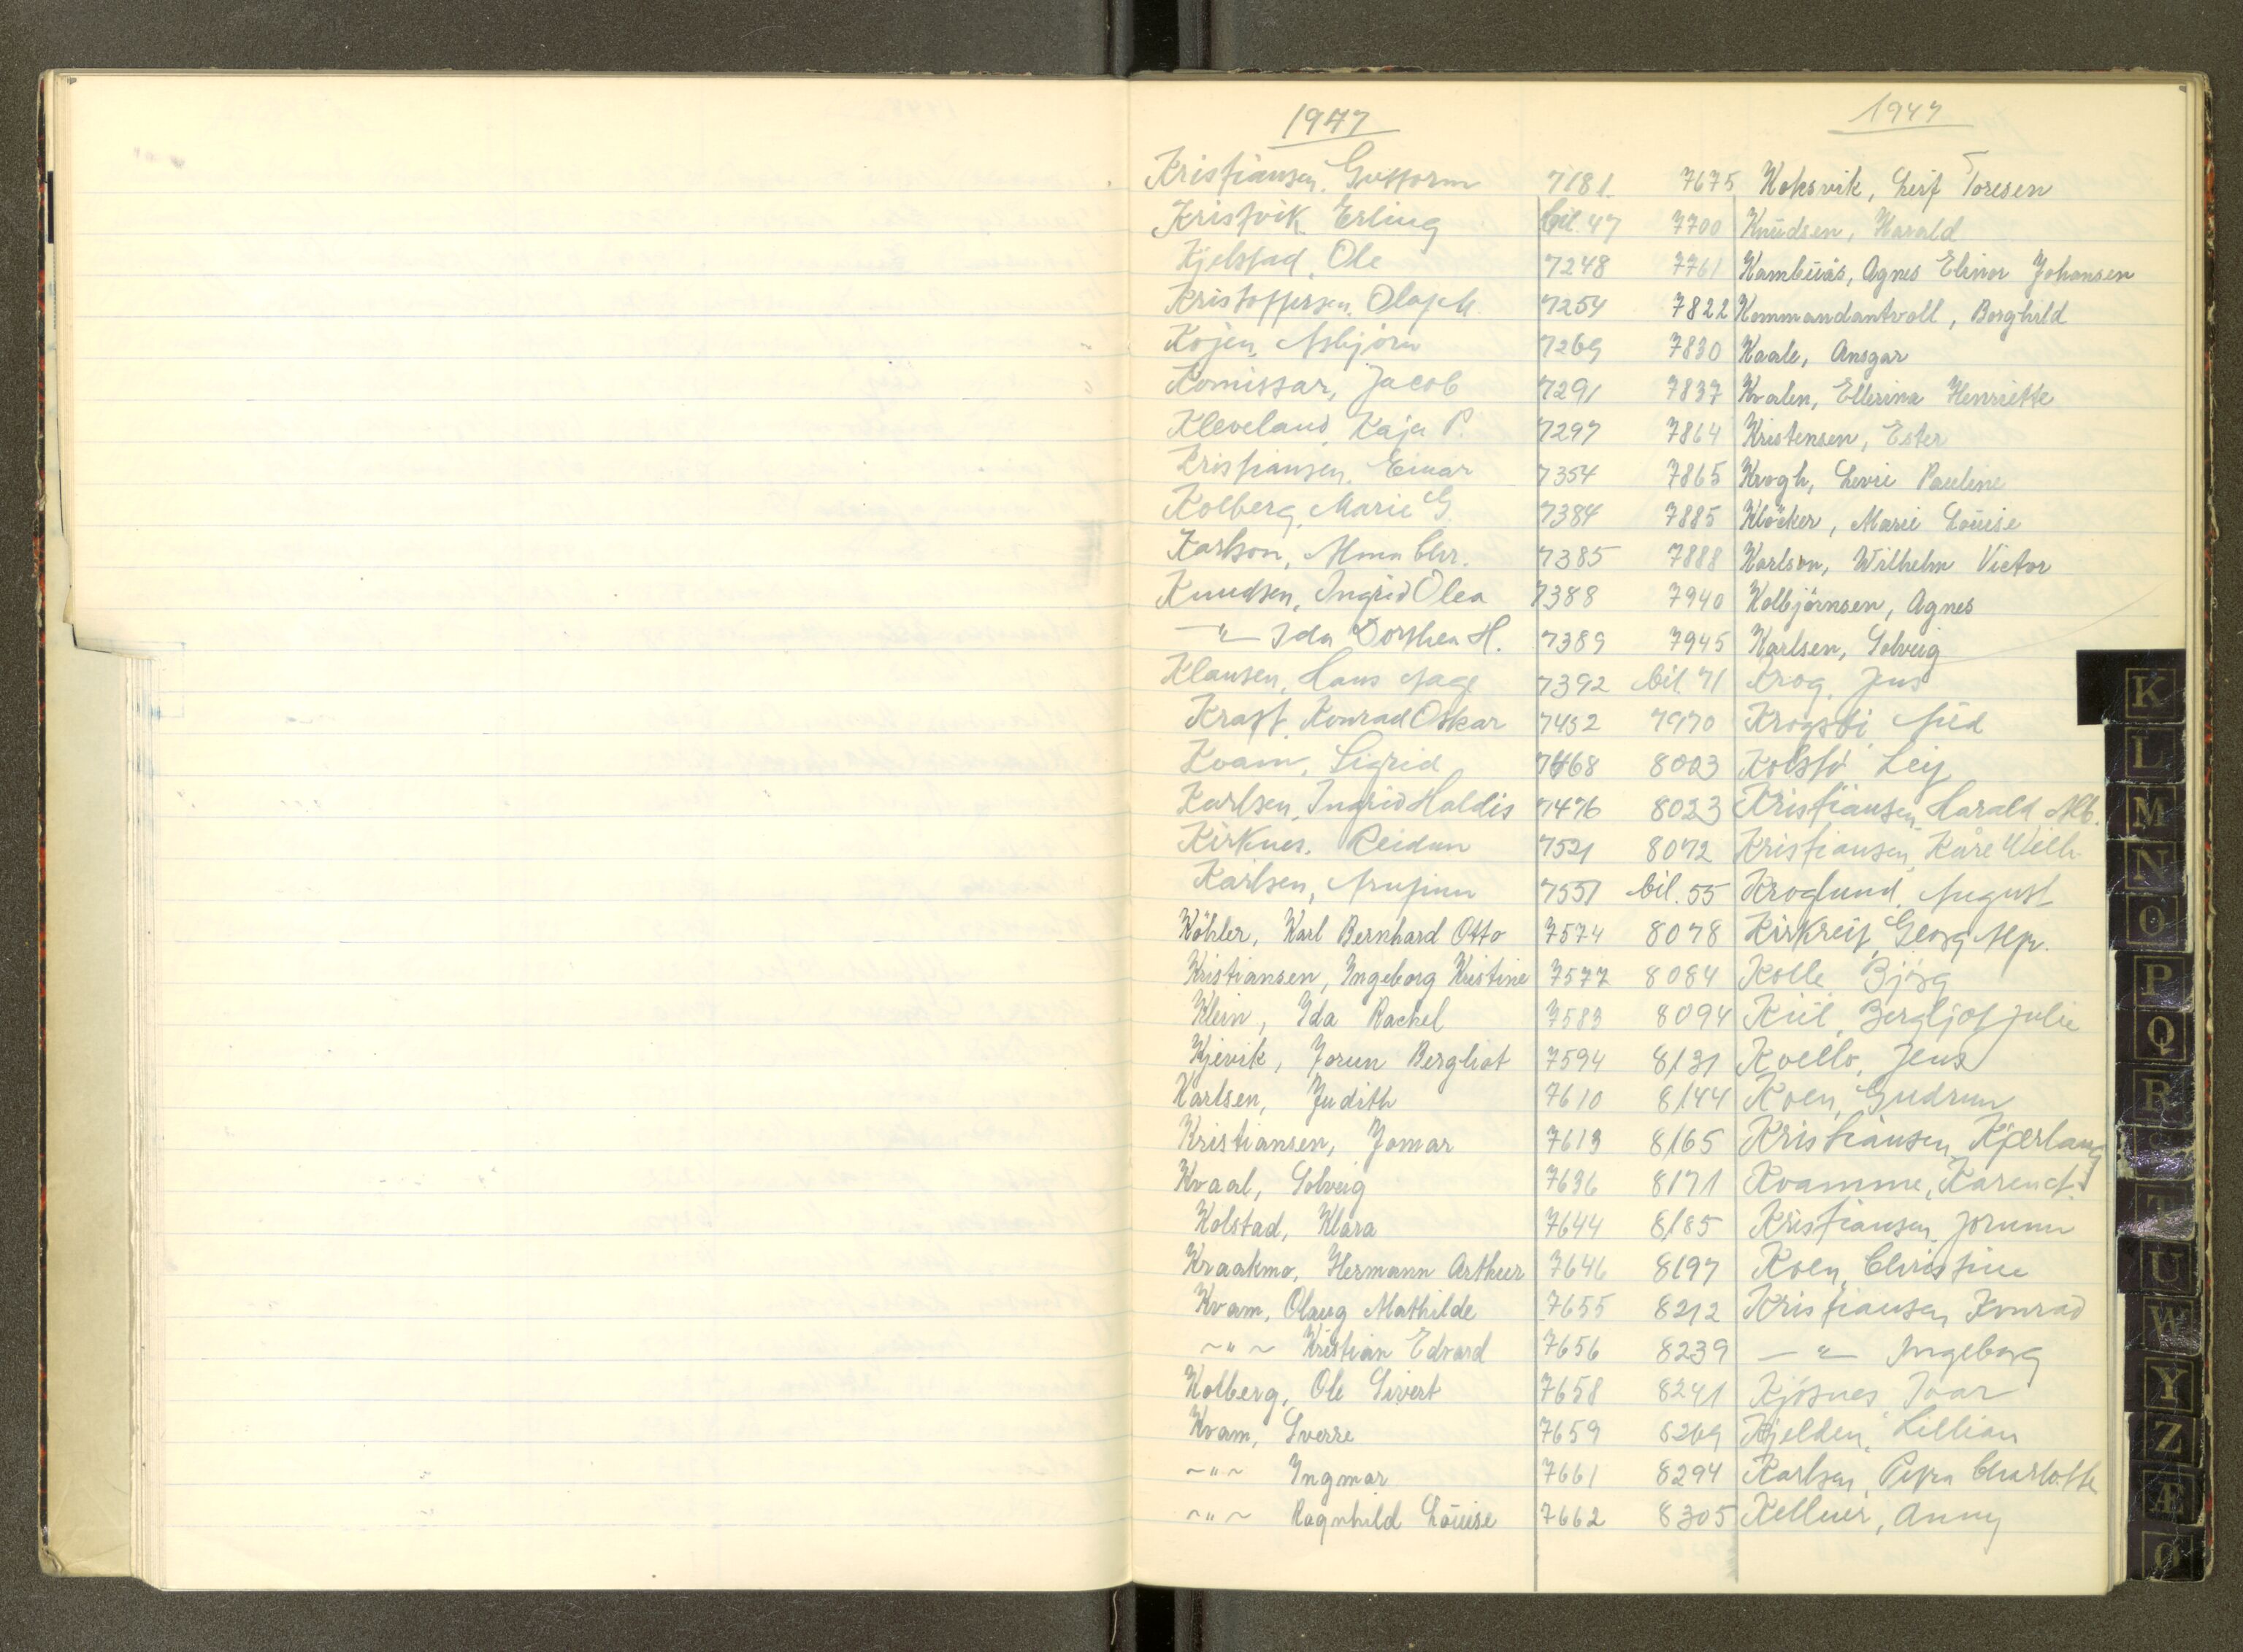 1947 1947
Kristiansen, Guttorm 7181 7675 Koksvik, Leif Toresen
Kristvik Erling bil. 47 7700 Knudsen, Harald
Kjelstad, Ole 7248 7761 Kambuås, Agnes Elinor Johansen
Kristoffersen, Olaf M. 7254 7822 Kommandantvoll, Borghild
Kojen, Asbjörn 7269 7830 Kaale, Ansgar
Komissar, Jacob 7291 7837 Kvalen, Ellerina Henriette
Kleveland, Kaja P. 7297 7864 Kristensen, Ester
Kristiansen, Einar 7354 7865 Krogh, Pauline
Kolberg, Marie G. 7384 7885 Klöcker, Marie Louise
Karlson, Alma Chr. 7385 7888 Karlson, Wilhelm Victor
Knudsen, Ingrid Olea 7388 7940 Kolbjörnsen, Agnes
—"— Ida Dorthea H. 7389 7945 Karlsen, Solveig
Klausen, Hans Aage 7392 bil. 71 Krog, Jens
Kraft, Konrad Oskar 7432 7970 Krogsti,
Kvam, Sigrid 7468 8003 Kolstö, Leif
Karlsen, Ingrid Haldis 7476 8023 Kristiansen, Harald Alb.
Kirknes, Reidun 7521 8072 Kristiansen, Kåre Wilh.
Karlsen, Arnfinn 7551 bil. 55 Kroglund, August
Köhler, Karl Bernhard Otto 7574 8078 Georg Alfr.
Kristiansen, Ingeborg Kristine 7577 8084 Kolle, Bjórg
Klein, Ida Rachel 7583 8094 Kiil, Bergljot Julie
Kjevik, Jorun Bergliot 7594 8131 Kvello, Jens
Karlsen, Judith 7610 8144 Koen, Gudrun
Kristiansen, Jomar 7613 8165 Kristiansen, Kjerlaug
Kvaal, Solveig 7636 8171 Kvamme, Karen
Kolstad, Klara 7644 8185 Kristiansen, Jorunn
Kraakmo, Hermann Arthur 7646 8197 Koen, Christine
Kvam, Olaug Mathilde 7655 8212 Kristiansen, Konrad
~"~ Kristian Edvard 7656 8239 —"— Ingeborg
Kolberg, Ole Sivert 7658 8241 Kjósnes, Ivar
Kvam, Sverre 7659 8269 Kjelden, Lillian
~"~ Ingmar 7661 8294 Karlsen, Petra Charlotte
~"~ Ragnhild Louise 7662 8305 Kellner, Anny
K
L
M
N
O
P
Q
R
S
T
U
W
Y
Z
Æ
Ø